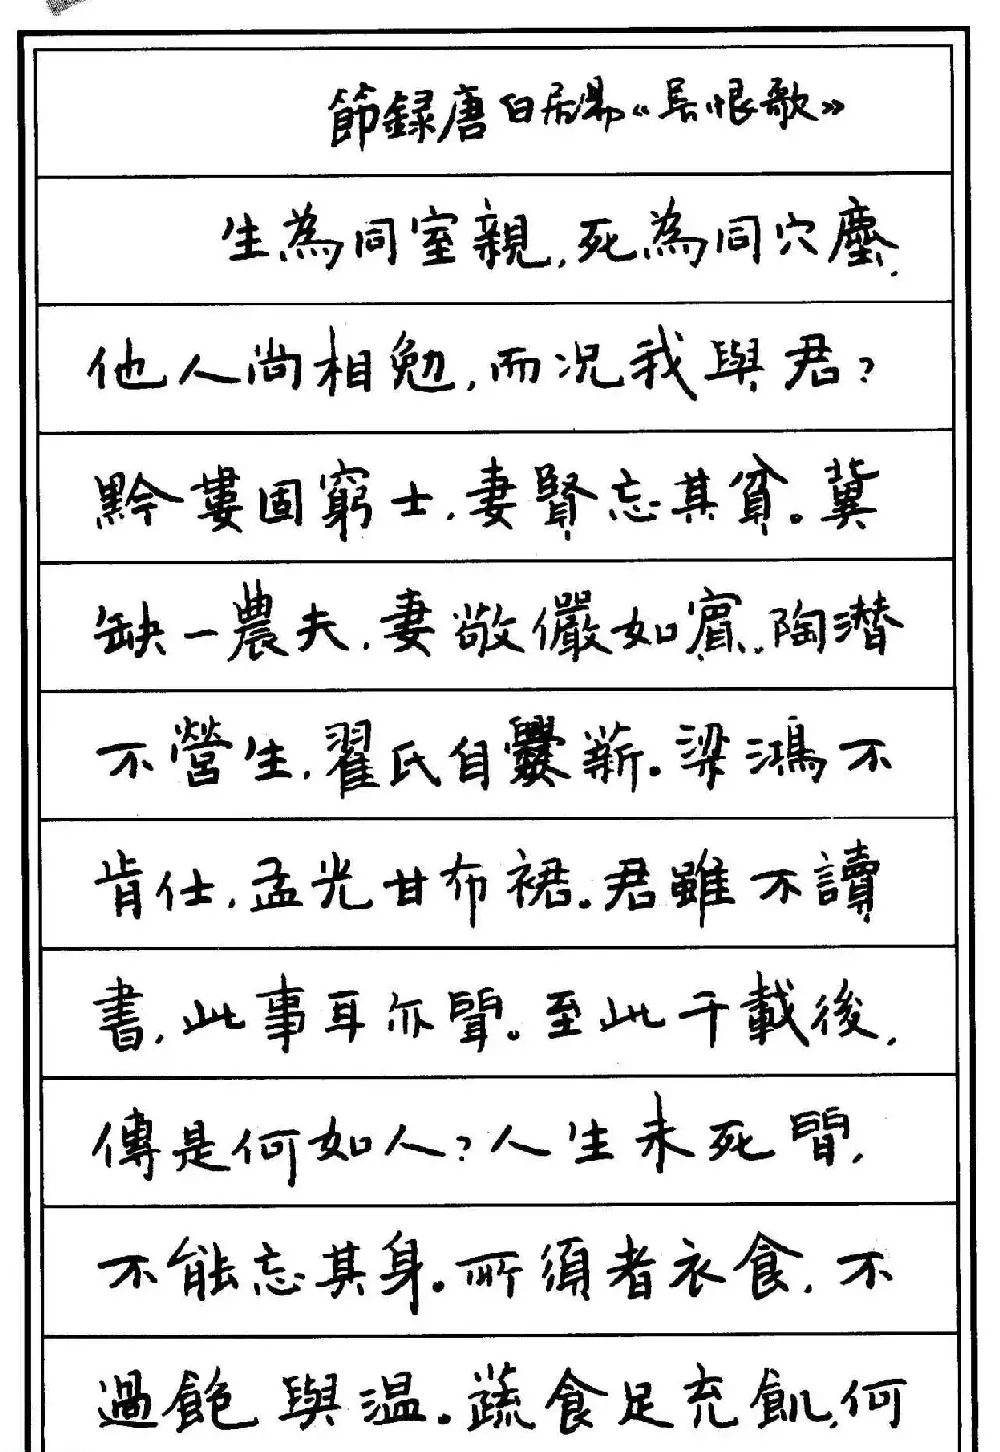 節録唐白居易《長恨歌》
生為同室親，死為同穴塵，
他人尚相勉，而况我與君？
黔婁固窮士，妻賢忘其貧。冀
缺一農夫，妻敬儼如賓，陶潜
不營生，翟氏自爨薪。梁鴻不
肯仕，孟光甘布裙。君雖不讀
書，此事耳亦聞。至此千載後，
傳是何如人？人生未死間，
不能忘其身。所須者衣食，不
過飽與温。蔬食足充飢，何